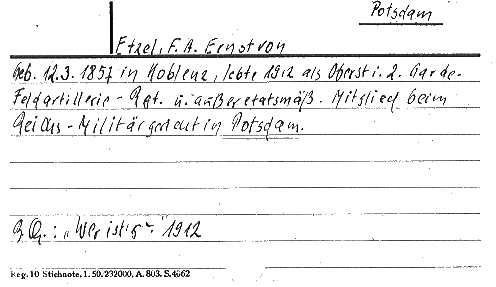 Potsdam
Etzel, F. A. Ernst von
Geb. 12.3. 1857 in Koblenz, lebte 1912 als Oberst i. 2. Garde-
Feldartillerie-Rgt. u. außeretatsmäß. Mitglied beim
Reichs-Militärgericht in Potsdam.
Qu.: „Wer ist's" 1912
Reg. 10 Stichnote, 1. 50. 232000, A. 803. S. 4662